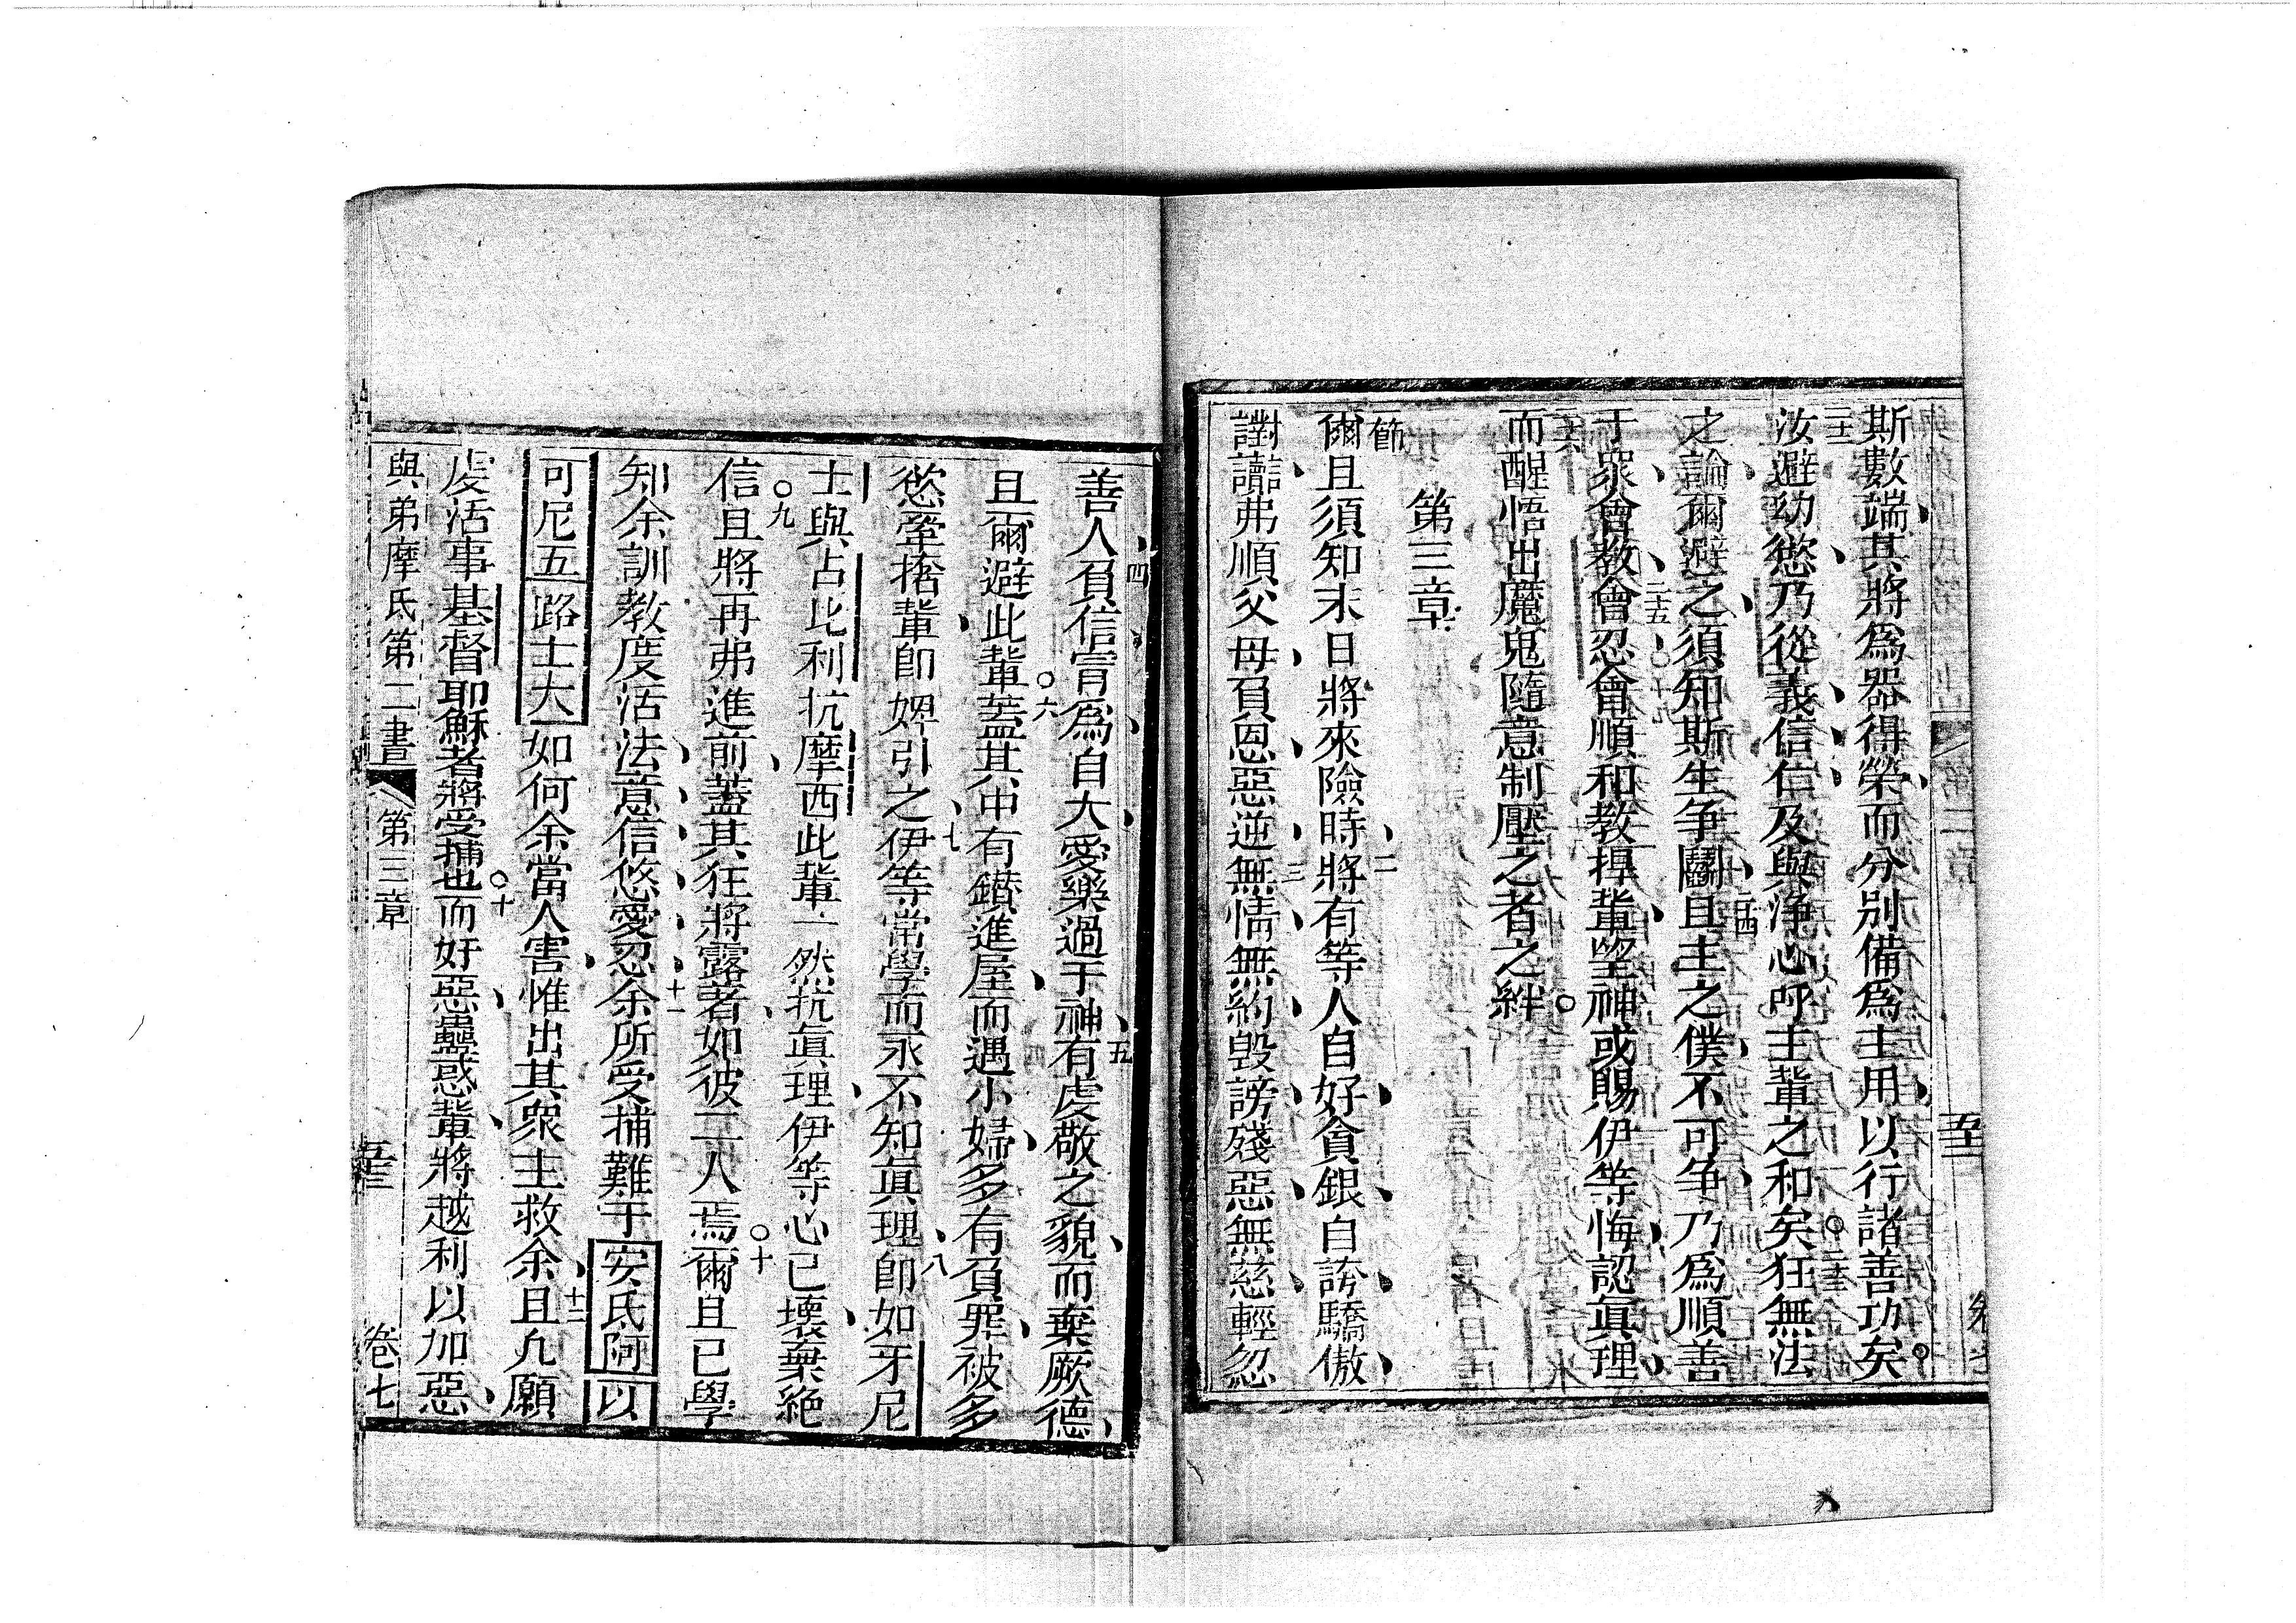 斯數端其將為器得榮而分別備為主用以行諸善功矣
汝避幼慾乃從義信仁及與淨心呼主輩之和矣狂無法
之論爾避之須知斯生爭鬬且主之僕不可爭乃為順善
于眾會教會忍會順和教捍輩望神或賜伊等悔認眞理
而醒悟出魔鬼隨意制壓之者之絆
第三章
節
爾且須知末日將來險時將有等人自好貪銀自誇驕傲
讟弗順父母負恩惡逆無情無約毀謗殘惡無慈輕忽
善人負信冐為自大愛樂過于神有虔敬之貌而棄厥德
且爾避此輩蓋其中有鑽進屋而遇小婦多有負罪被多
慾牽捨輩卽婢引之伊等常學而永不知眞理卽如牙尼
士與占比利抗摩西此輩亦然抗眞理伊等心已壞棄絕
信且將再弗進前蓋其狂將露著如彼二人焉爾且已學
知余訓教度活法意信悠愛忍余所受捕難于安氏阿以
可尼五路士大如何余當人害惟出其眾主救余且凡願
虔活事基督耶穌者將受捕也而奸惡蠱惑輩將越利以加惡
與弟摩氐第二書 第三章 卷七